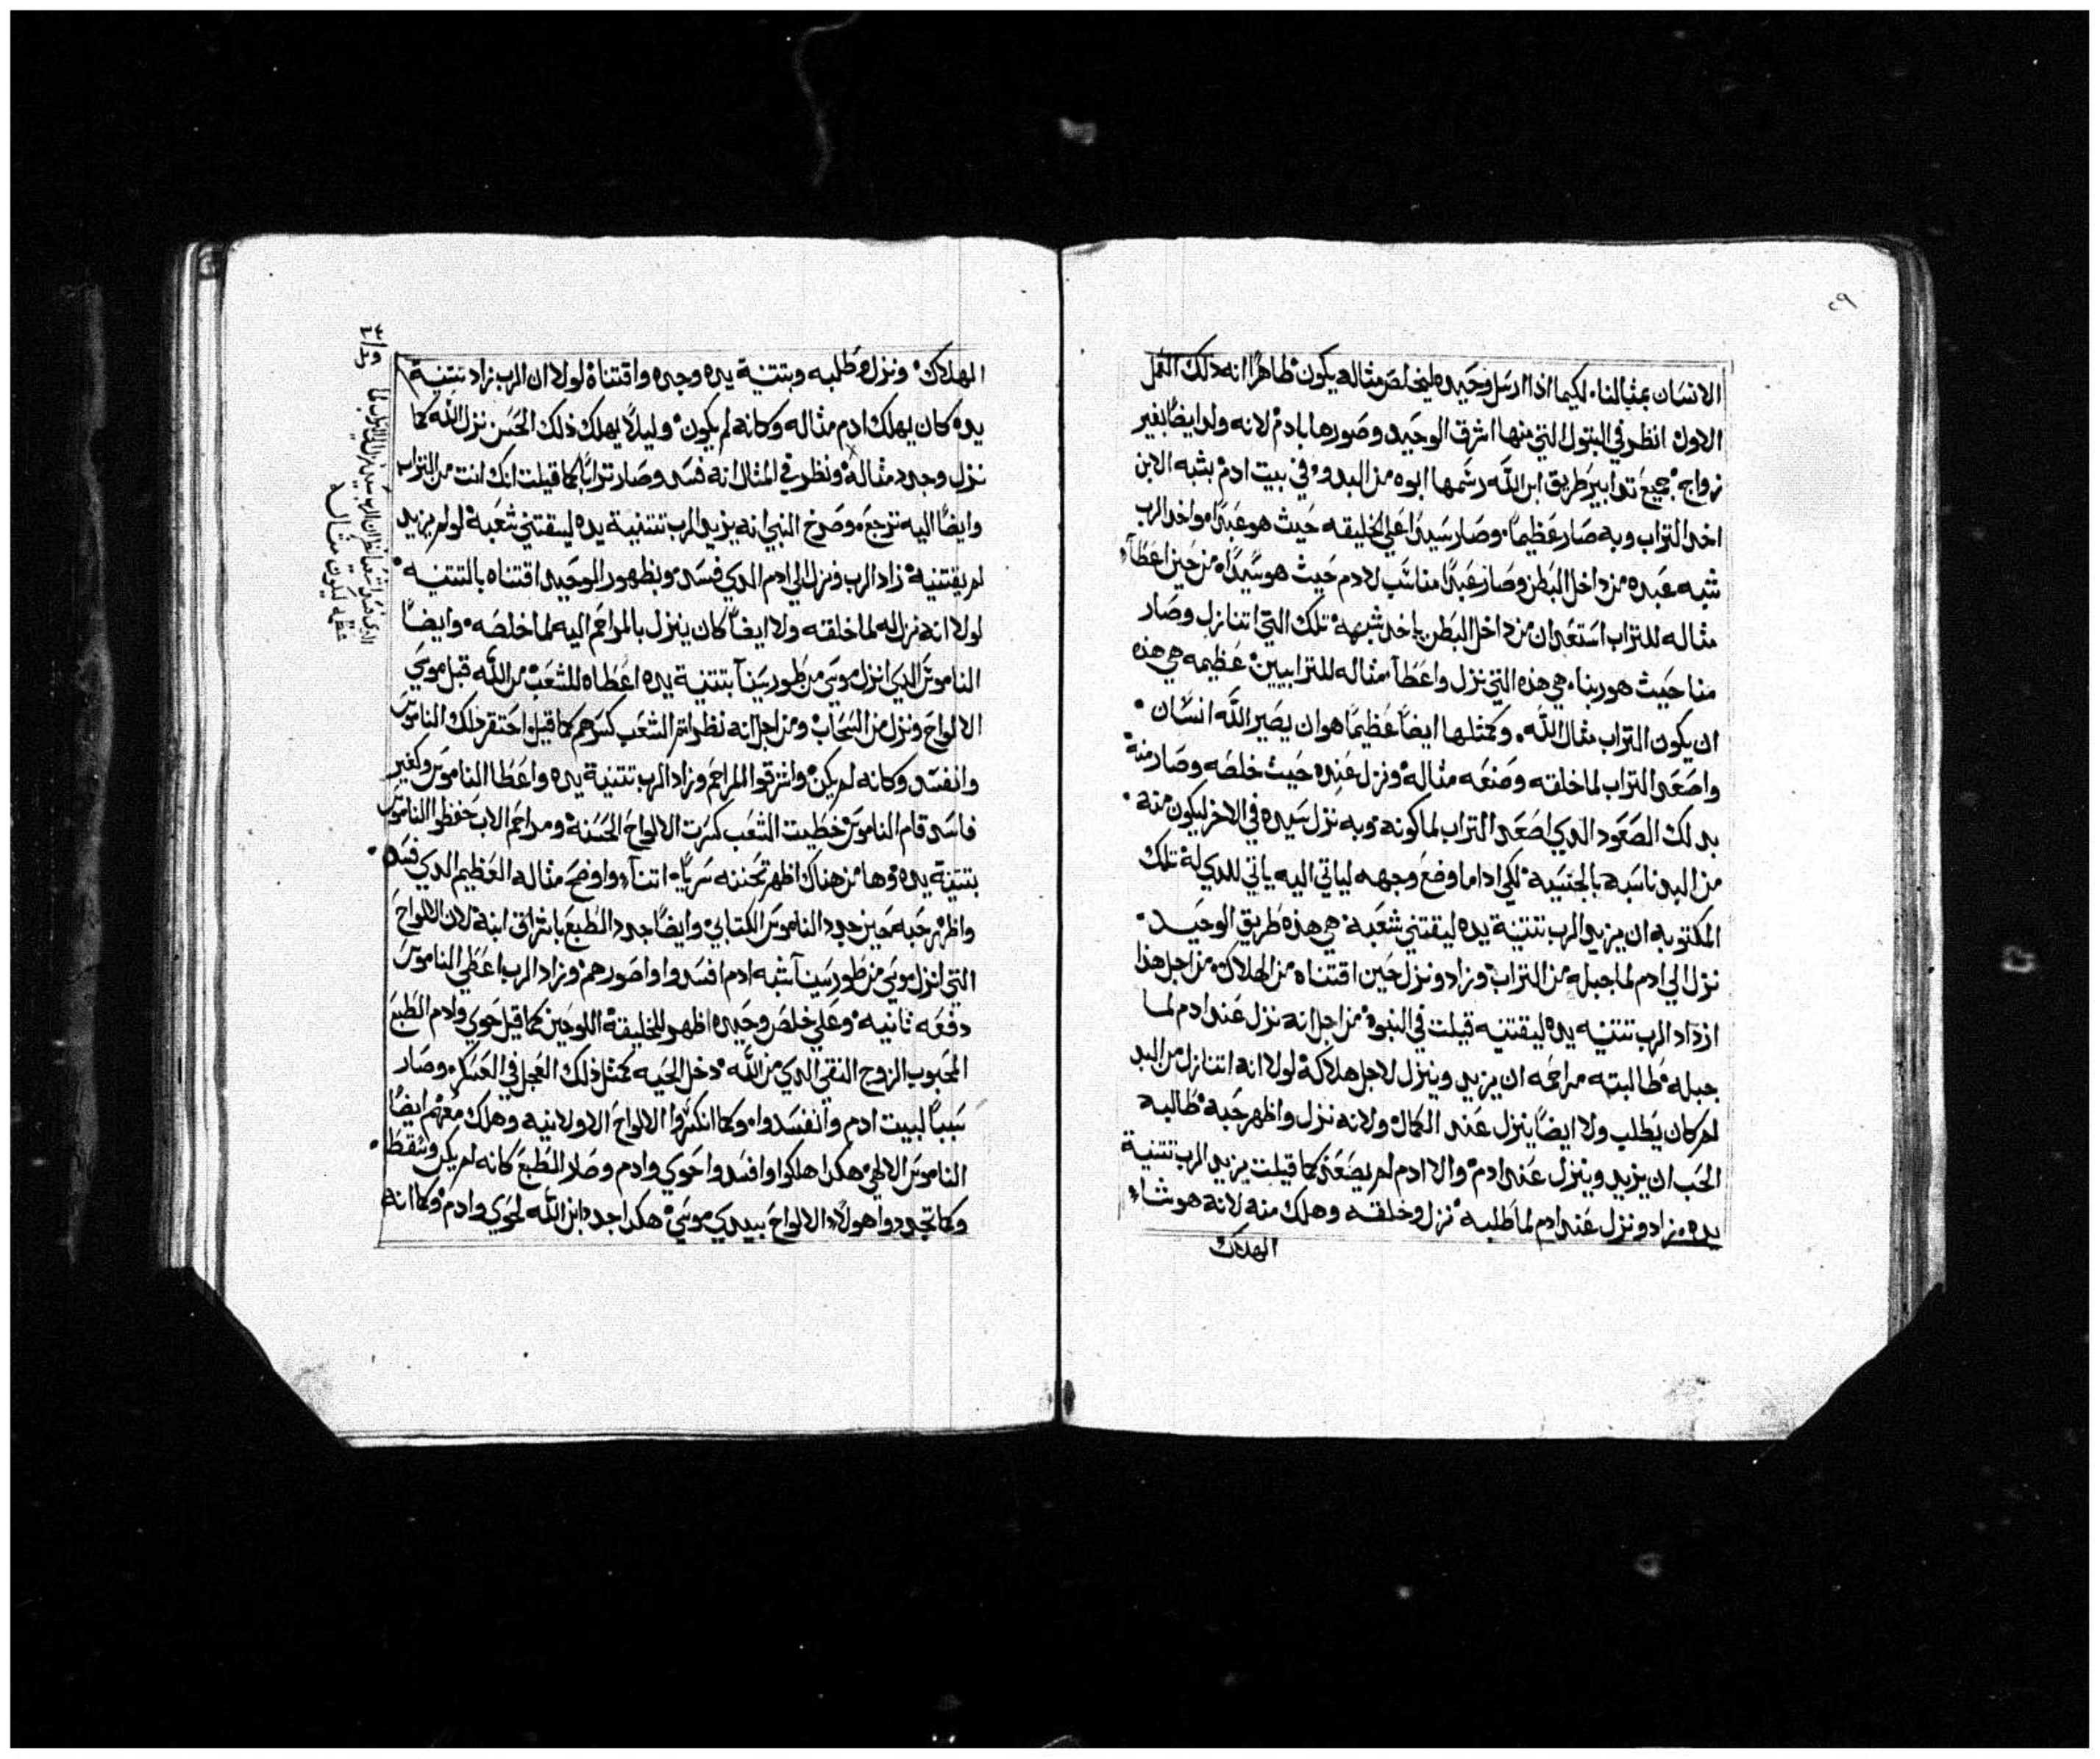 ٢٩
الانسان بمثالنا. لكيما اذا ارسل وحيده ليخلص مثاله يكون ظاهرًا انه ذلك العمل
الاول انظر في البتول التي منها اشرق الوحيد وصورها بادم لانه ولد ايضًا بغير
زواج. جميع تدابير طريق ابن الله رسمها ابوه من البدو. وفي بيت ادم بشبه الابن
اخد التراب وبه صار عظيمًا. وصار سيدًا علي الخليقه حيث هو عبدًا. واخد الرب
شبه عبده من داخل البطن وصار عبدًا مناسب لادم حيث هو سيدًا. من حين اعطاء
مثاله للتراب استعد ان من داخل البطن ياخد شبهه تلك التي اتنازل وصار
منا حيث هو ربنا. هي هذه التي نزل واعطا مثاله للترابيين. عظيمه هي هذه
ان يكون التراب مثال الله. وكمثلها ايضًا عظيمًا هو ان يصير الله انسان.
واصعد التراب لما خلقه وصنعه مثاله ونزل عنده حيث خلصه وصار منه
بدلك الصعود الدي اصعد التراب لما كونه وبه نزل سيده في الاخر ليكون منه.
من البد ناسبه بالجنسيه لكي اداما وضع وجهه لياتي اليه ياتي للدي له تلك
المكتوبه ان يزيد الرب تتنية يده ليقتني شعبه هي هذه طريق الوحيد.
نزل الي ادم لما جبله من التراب وزاد ونزل حين اقتناه من الهلاك من اجل هذا
ازداد الرب تتنيه يده ليقتنيه قيلت في النبوة من اجل انه نزل عند ادم لما
جبله طالبته مراحمه ان يزيد وينزل لاجل هلاكه لولا انه اتنازل من البد
لم كان يطلب ولا ايضًا ينزل عند الكمال ولانه نزل واظهر حبه طالبه
الحب ان يزيد وينزل عند ادم والا ادم لم يصعد كما قيلت يزيد الرب تتنية
يده. زاد ونزل عند ادم لما طلبه نزل وخلقه وهلك منه لانه هو شاء
الهلاك
الهلاك ونزل وطلبه وبتتنية يده وجده واقتناه لولا ان الرب زاد تتنية
يده كان يهلك ادم مثاله وكانه لم يكون وليلا يهلك ذلك الحسن نزل الله كما
نزل وجدد مثاله ونظر في المثال انه فسد وصار ترابًا كما قيلت انك انت من التراب
وايضًا اليه ترجع. وصرخ النبي انه يزيد الرب تتنية يده ليقتني شعبه لو لم يزيد
لم يقتنيه زاد الرب ونزل الي ادم الدي فسد وبظهور الوحيد اقتناه بالتتنيه.
لولا انه نزل له لما خلقه ولا ايضًا كان ينزل بالمراحم اليه لما خلصه. وايضًا
الناموس الدي انزل موسي من طور سينا بتتنية يده اعطاه للشعب من الله قبل موسي
الالواح ونزل من السحاب ومن اجل انه نظر اثم الشعب كسرهم كما قيل احتقر دلك الناموس
وانفسد وكانه لم يكن واشرقوا المراحم وزاد الرب تتنية يده واعطا الناموس ولغير
فاسد قام الناموس خطيت الشعب كسرت الالواح الحسنه ومراحم الاب حفظوا الناموس
بتتنية يده وها من هناك اظهر تحننه سريًا. اتنا واوضح مثاله العظيم الدي فسد.
واظهر حبه حين جدد الناموس الكتابي وايضًا جدد الطبع باشراق ابنه لان الالواح
التي انزل موسي من طور سينا شبه ادم افسدوا واصورهم وزاد الرب اعطي الناموس
دفعه ثانيه وعلي خلص وحيده اظهر للخليقة اللوحين كما قيل حوي وادم الطبع
المحبوب الزوج النقي الدي من الله دخل الحيه كمثل ذلك العجل في العسكر وصار
سببًا لبيت ادم وانفسدوا. وكما انكسروا الالواح الاولانيه وهلك معهم ايضًا
الناموس الالهي هكدا هلكوا وافسدوا حوي وادم وصار الطبع كانه لم يكن وسقط.
وكما تجددوا هولاء الالواح بيدي موسي هكدا جدد ابن الله لحوي وادم وكما انه